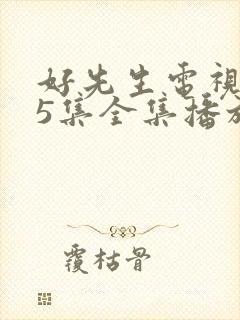 好先生電視
5集全集播放
覆枯骨